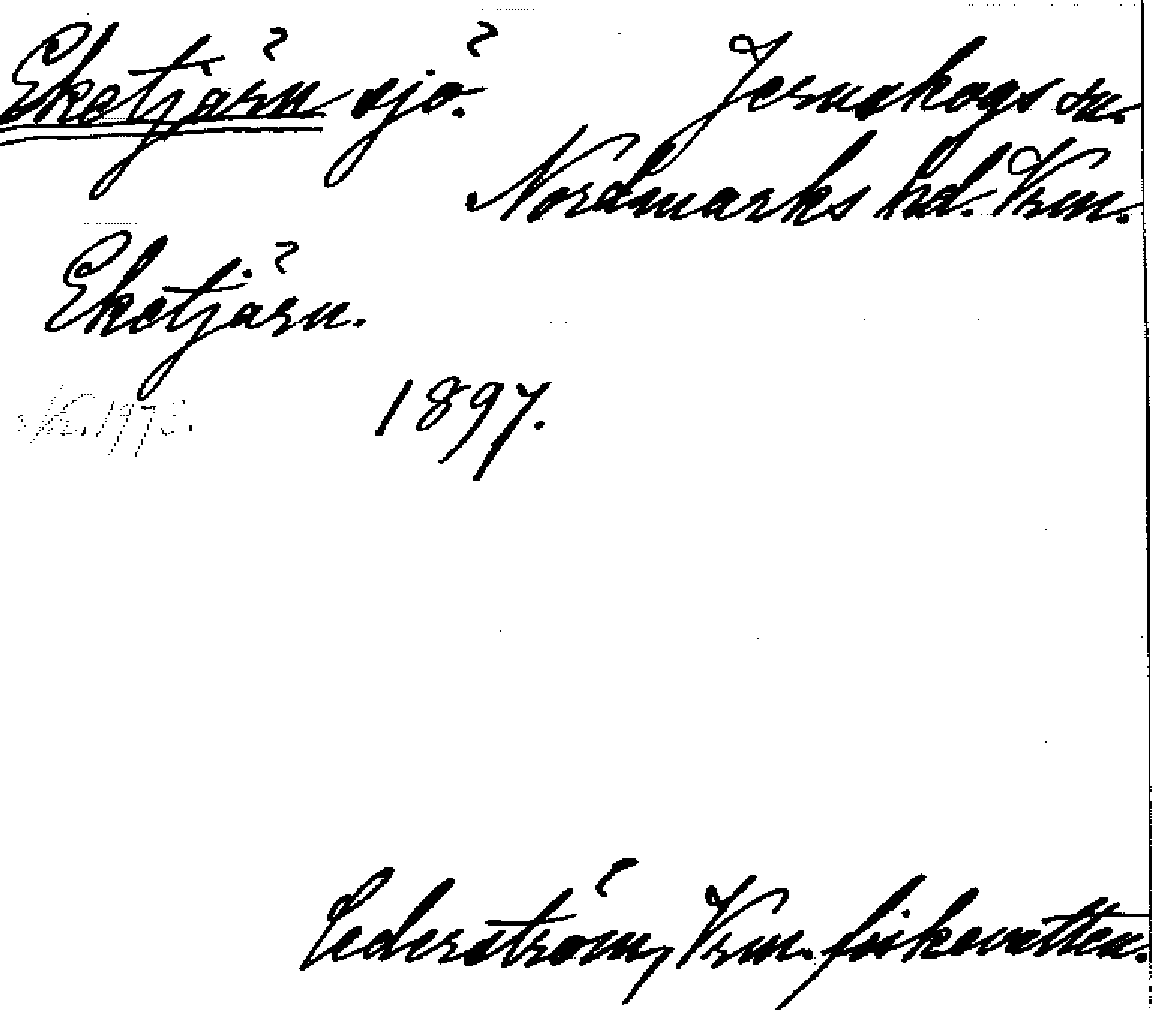 Ekotjärn sjö. Jernskogs sn.
Nordmarks hd. Vrm.
Ekotjärn.
1897.
Cederström, Vrm. fiskevatten.